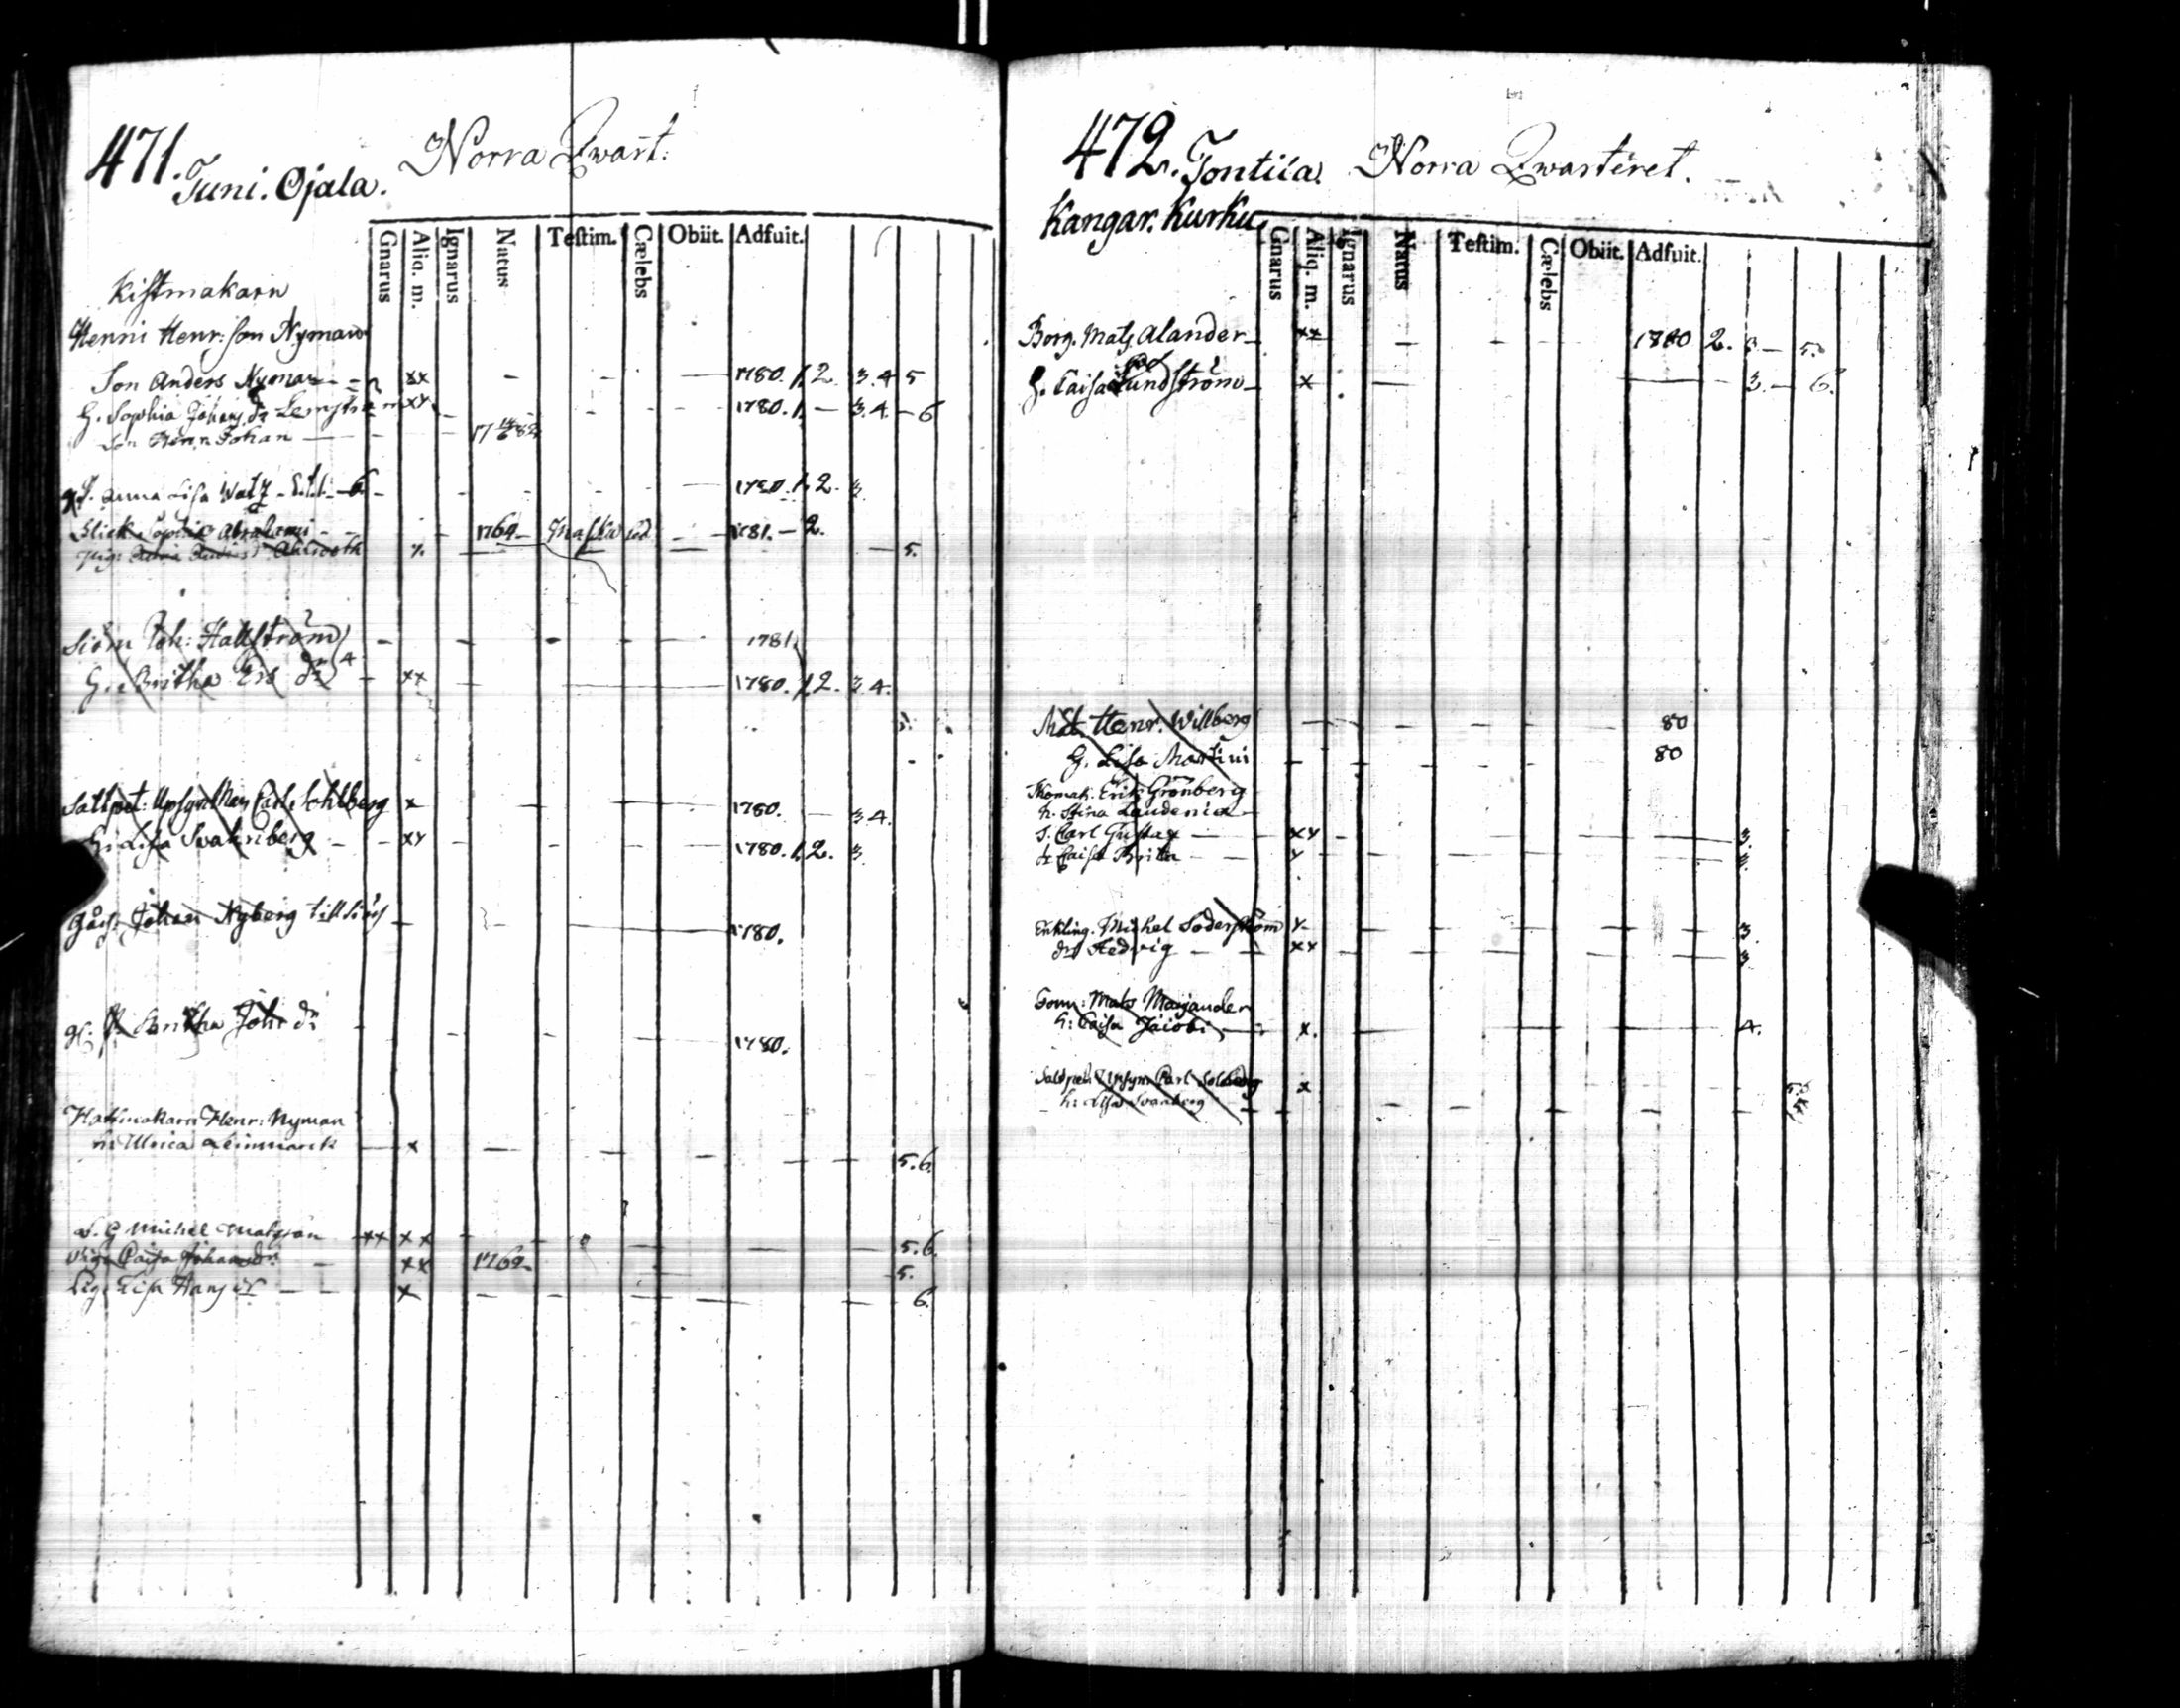 471. Juni. Ojala. Norra Qwart:
Gnarus Aliq. m. Ignarus Natus Teſtim. Cælebs Obiit. Adfuit.
Kistmakarn
Henri Henr: son Nyman
Son Anders Nyman xx 1780. 1. 2. 3. 4 5
H. Sophia Johans dr Lemström xx 1780. 1. 3. 4. 6
Son Henr Johan
Anna Lisa 6 1780. 1. 2. 3
Sophia Abrahami 1769 1781. 2.
Pig: x 5.
Joh: Hallström 1781.
H. Britha Ers dr 4 xx 1780. 1. 2. 3. 4.
5.
Carl Sohlberg x 1780. 3. 4.
H. Lisa Swahnberg xx 1780. 1. 2. 3
Johan Nyberg 1780.
Britha Joh dr 1780.
Hattmakarn Henr: Nyman
h: Ulrica x 5. 6.
Michel Matsson xx xx 5. 6.
Pig. Caisa Johansdr xx 1769. 5.
Pig. Lisa Hans dr x 6.
472. Tontila. Norra Qwarteret.
Kangar. Kurku
Gnarus Aliq. m. Ignarus Natus Teſtim. Cælebs Obiit. Adfuit.
Borg. Mats Alander xx 1780 2. 3 5.
H. Caisa Lundström x 3. 6.
Henr. Willberg 80
H. Lisa Martini 80
Skomak. Erik Grönberg
h. Stina Laudenia
S. Carl Gustaf xx 3.
dr Caisa Brita x 3.
Enkling. Michel Söderström x 3.
dr Hedvig xx 3
Mats Majander
h: Caisa Jacobi x. 4.
Carl Solberg x 5.
h: Lisa Svanberg 5